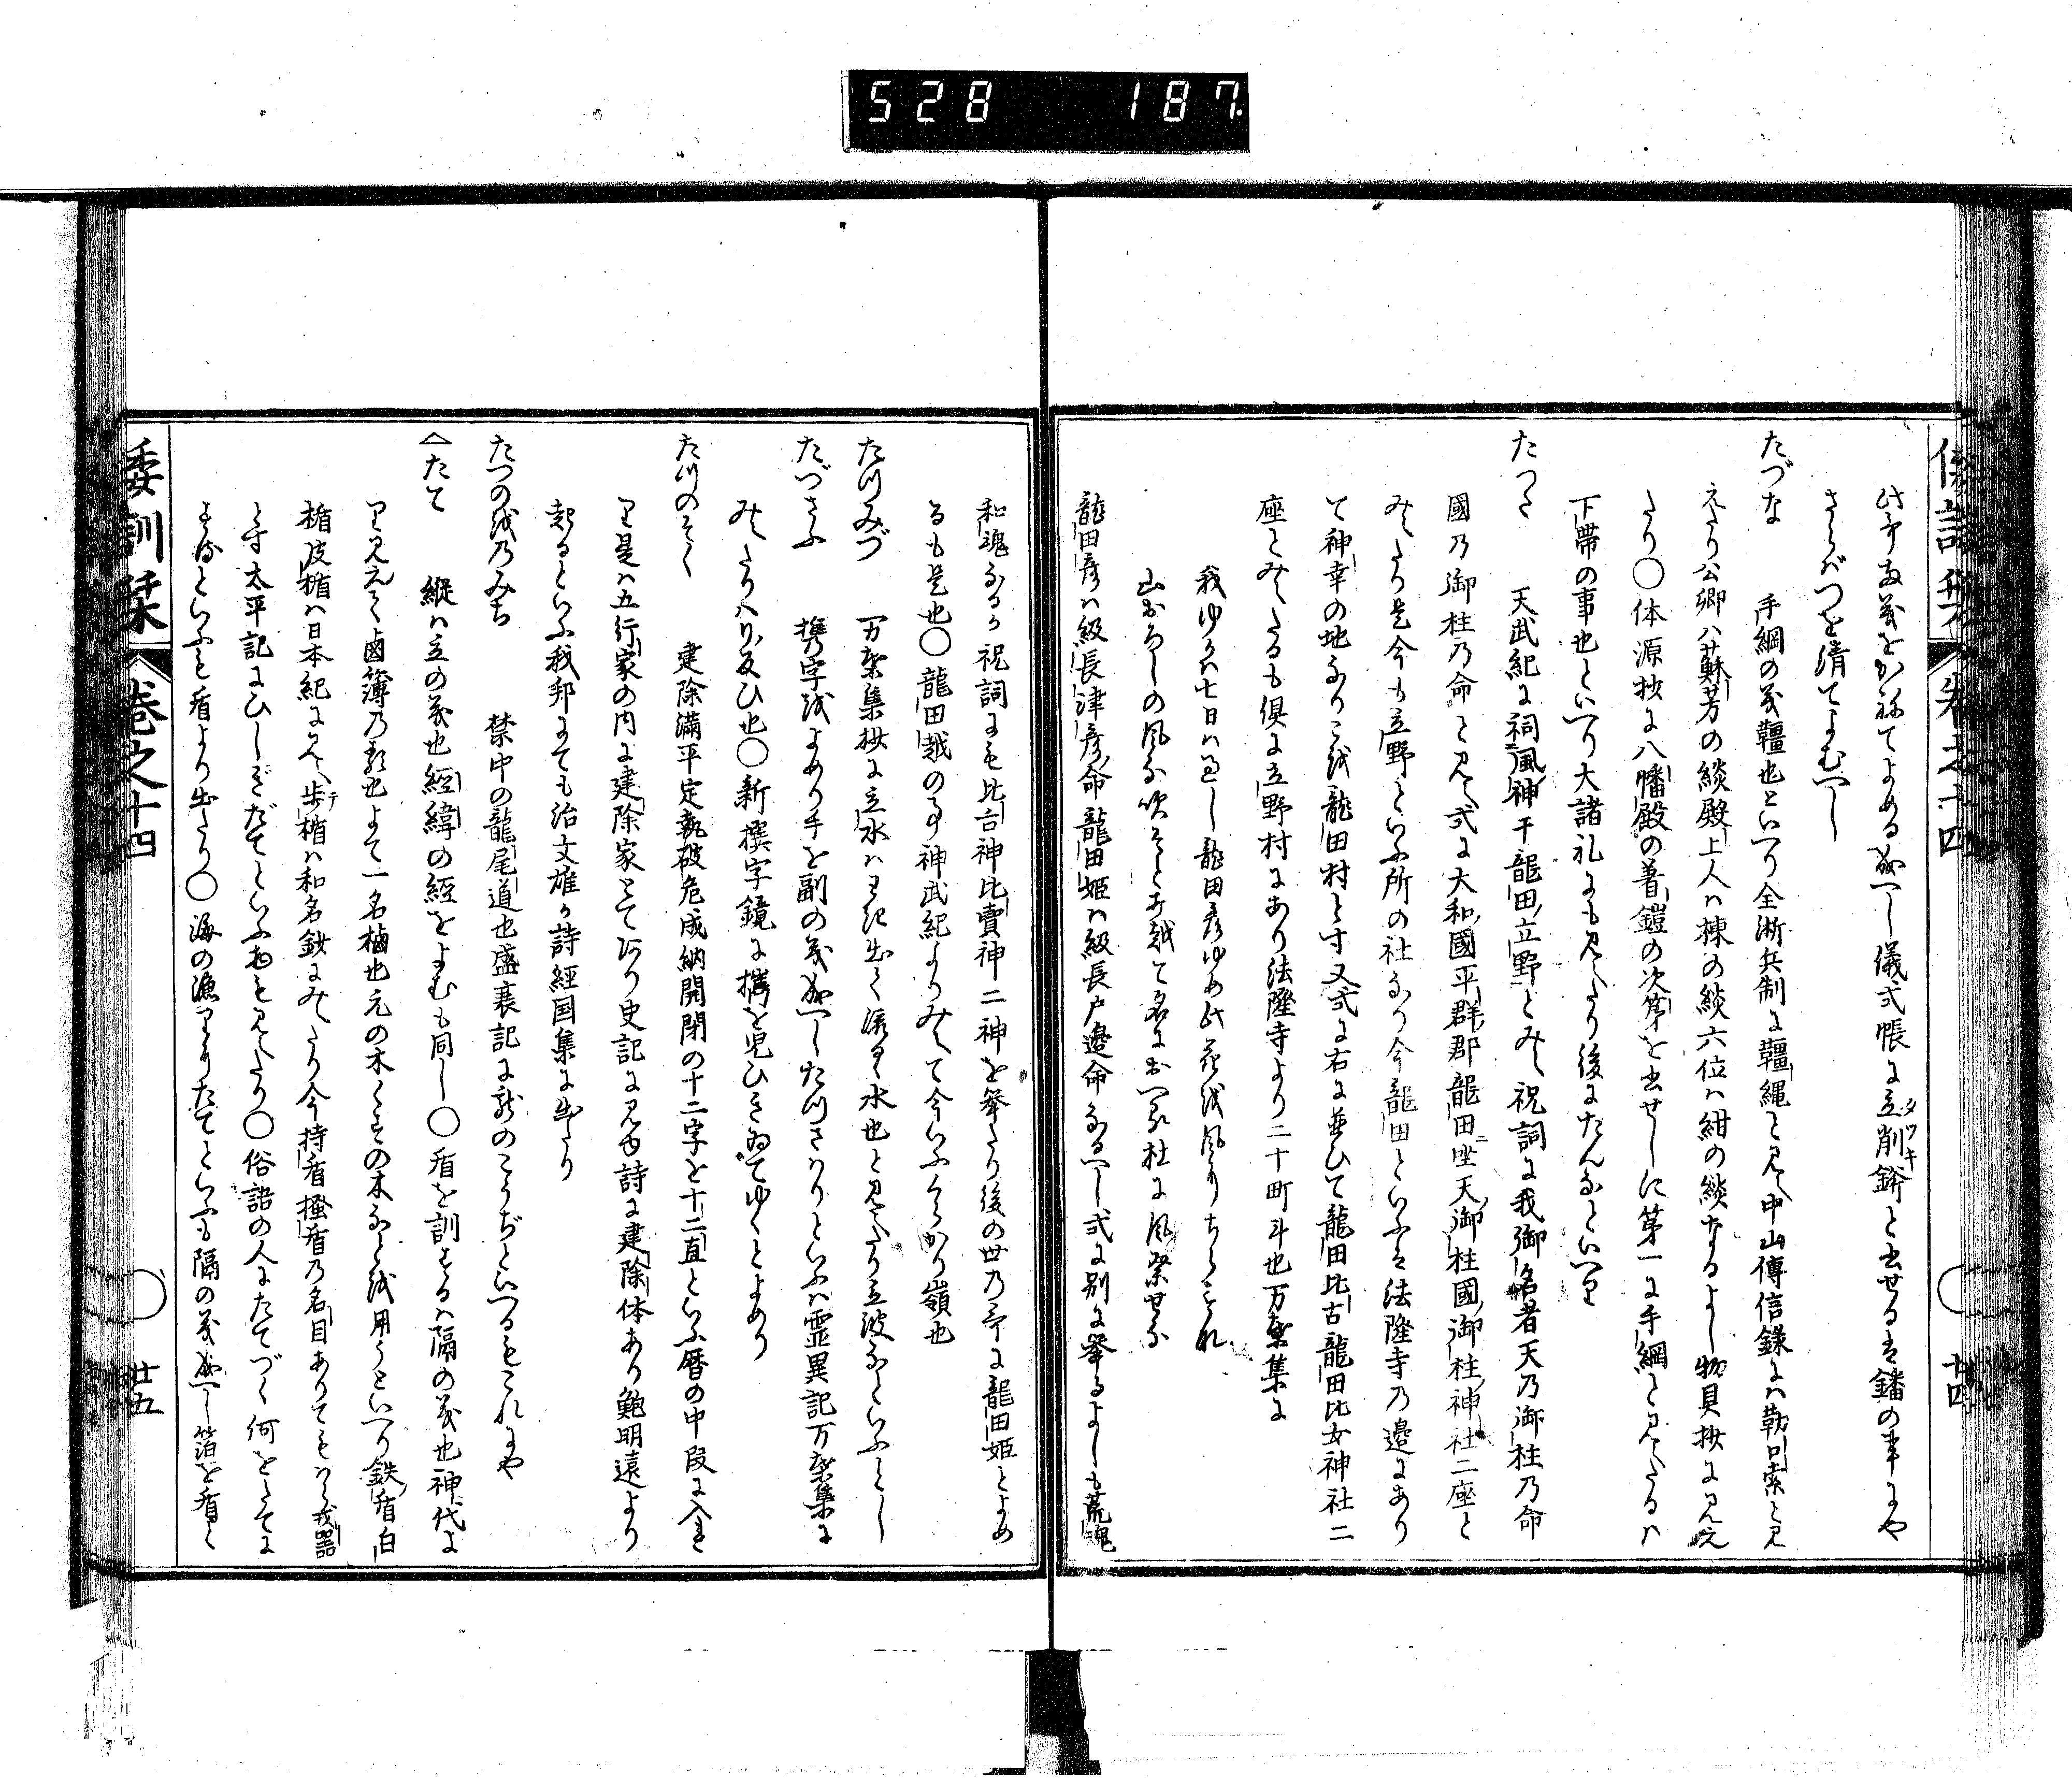 528 187
倭訓栞 巻之十四 廿四
此等両義をかねてよめる成へし儀式帳に立削鉾と書せるは鐇の事にや
さらばつを清てよむへし
たづな 手綱の義韁也といへり全浙兵制に韁縄と見え中山傳信録には勒口索と見
えたり公卿ハ蘇芳の綟殿上人ハ棟の綟六位ハ紺の綟なるよし物具抄に見え
たり○体源抄に八幡殿の着鎧の次第を書せしに第一に手綱と見えたるハ
下帯の事也といへり大諸礼にも見えたり後にたんなといへり
たつた 天武紀に祠風神于龍田立野とみえ祝詞に我御名者天乃御柱乃命
國乃御柱乃命と見え式に大和國平群郡龍田ニ坐天御柱國御柱神社二座と
みえたり是今も立野といふ所の社なり今龍田といふは法隆寺乃邊にあり
て神幸の地なりこを龍田村と寸又式に右に並ひて龍田比古龍田比女神社二
座とみえたるも倶に立野村にあり法隆寺より二十町斗也万葉集に
我ゆきハ七日ハ過し龍田彦ゆめ此花を風にちらされ
山おろしの風な吹そとす越て名におへる杜に風祭せな
龍田彦ハ級長津彦命龍田姫ハ級長戸邊命なるへし式に別に挙るよしも荒魂
和魂なるか祝詞にも比古神比賣神二神を挙たり後の世乃哥に龍田姫とよめ
るも是也○龍田越の事神武紀よりみえて今いふくらかり嶺也
たつみづ 万葉集抄に立水ハわき出て流るゝ水也と見えたり立波なといふとし
たづさふ 携字をよめり手を副の義成へしたづさハりといふハ霊異記万葉集に
みえたりハり反ひ也○新撰字鏡に攜を児ひきゐてゆくとよめり
たつのそく 建除満平定執破危成納開閉の十二字を十二直といふ暦の中段に入を
り是ハ五行家の内に建除家とてあり史記に見ゆ詩に建除体あり鮑明遠より
起るといふ我邦にても治文雄か詩経国集に出たり
たつの越乃みち 禁中の龍尾道也盛衰記に龍のこうぢといへるもこれにや
へたて 縦ハ立の義也經緯の經をよむも同し○盾を訓するハ隔の義也神代に
り見えて鹵簿乃類也よて一名櫓也元の木くその木なとを用うといへり鉄盾白
楯皮楯ハ日本紀に見え歩楯ハ和名鈔にみえたり今持盾掻盾乃名目ありてもハら戎器
と寸太平記にひしぎだてといふ物も見えたり○俗語の人にたてづく何をたてに
するといふも盾より出たり○海の漁にりたてといふも隔の義成へし箔を盾と
倭訓栞 巻之十四 廿五